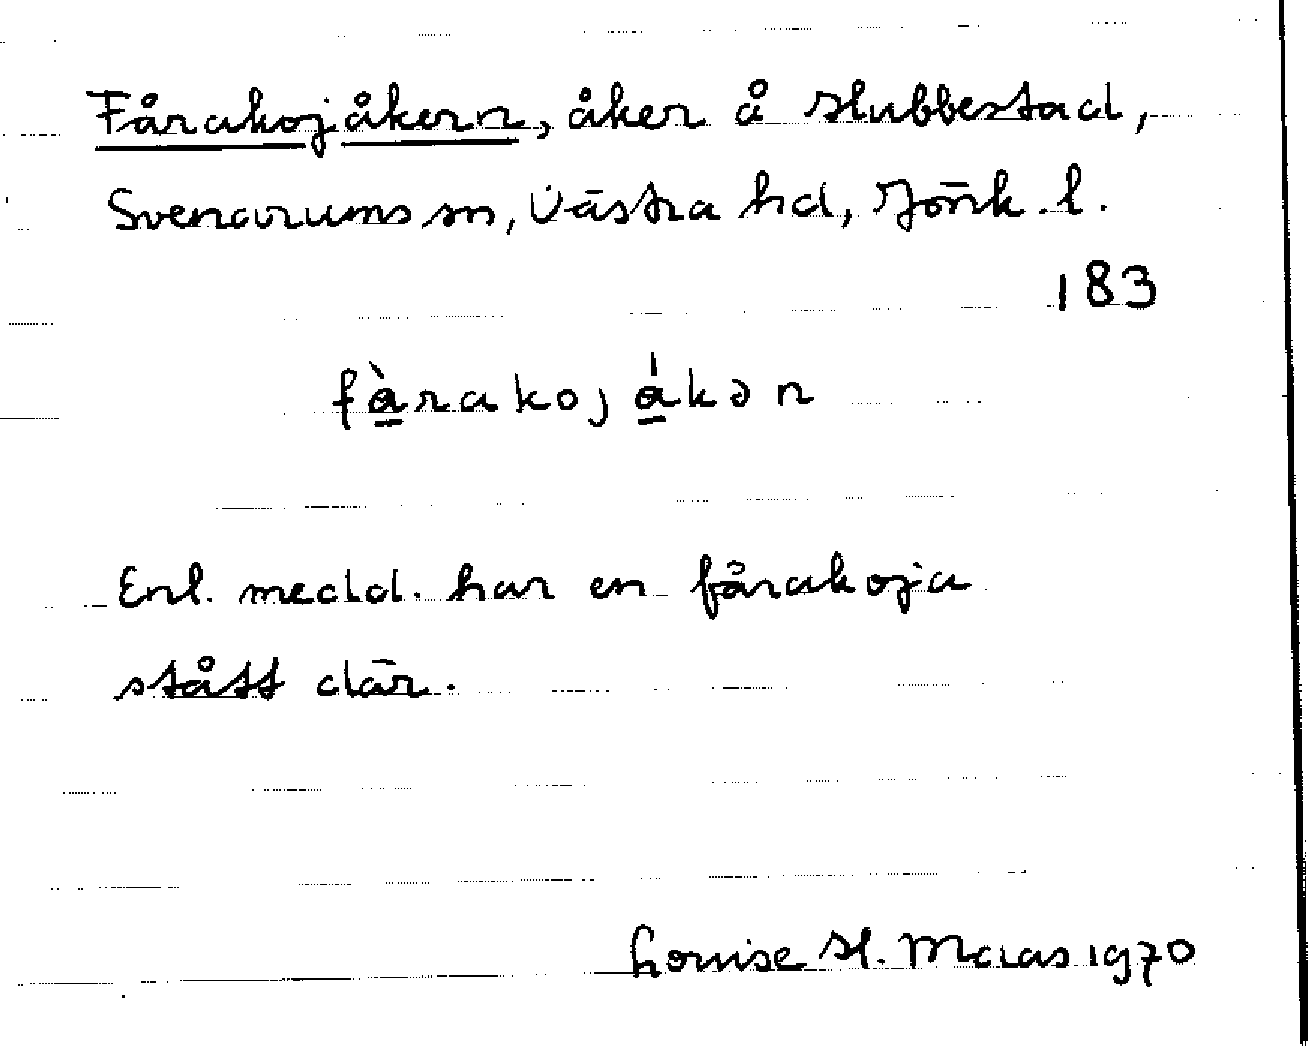 Fårakojåkern, åker å Slubbestad,
Svenarums sn, Västra hd, Jönk. l.
183
fàrakojákən
Enl. medd. har en fårakoja
stått där.
Louise H. Maas 1970